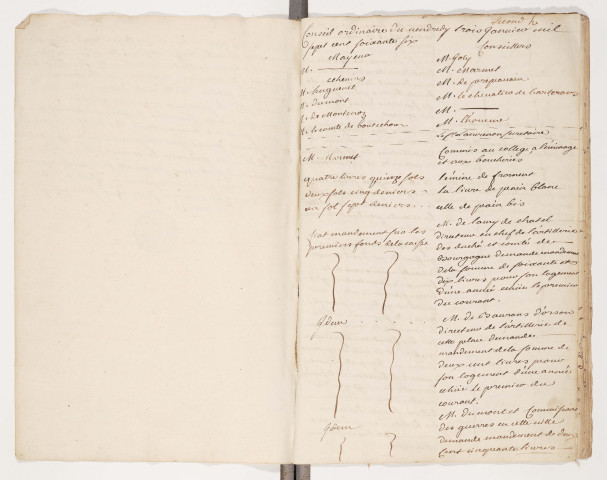 second h
Conseil ordinaire du vendredy trois Janvier mil
sept cent soixante six
Mayeur
M. ———
echevins
M. huguenet
M. Dumont
M. de Montenoz
M. le comte de
Conseillers
M. Joly
M. Marmet
M. de
M. le chevalier de
M. ———
M. Lhomme
Le Sr. secretaire
M. Mormet
commis au college a l'eminage
et aux boucheries
quatre livres quinze sols
l'emine de froment
deux sols cinq deniers
la livre de pain blanc
un sol sept deniers
celle de pain bis
fiat mandement sur les
premiers fonds de la caisse
M. de de chatel
directeur en chef de l'artillerie
des duché et comté de
Bourgogne demande mandement
de la somme de soixante et
dix livres pour son logement
d'une année echue le premier
du courant.
Idem
M. de d'orson
directeur de l'artillerie de
cette place demande
mandement de la somme de
deux cent livres pour
son logement d'une année
echue le premier du
courant.
Idem
M. Dumont Commissaire
des guerres en cette ville
demande mandement de deux
cent cinquante livres